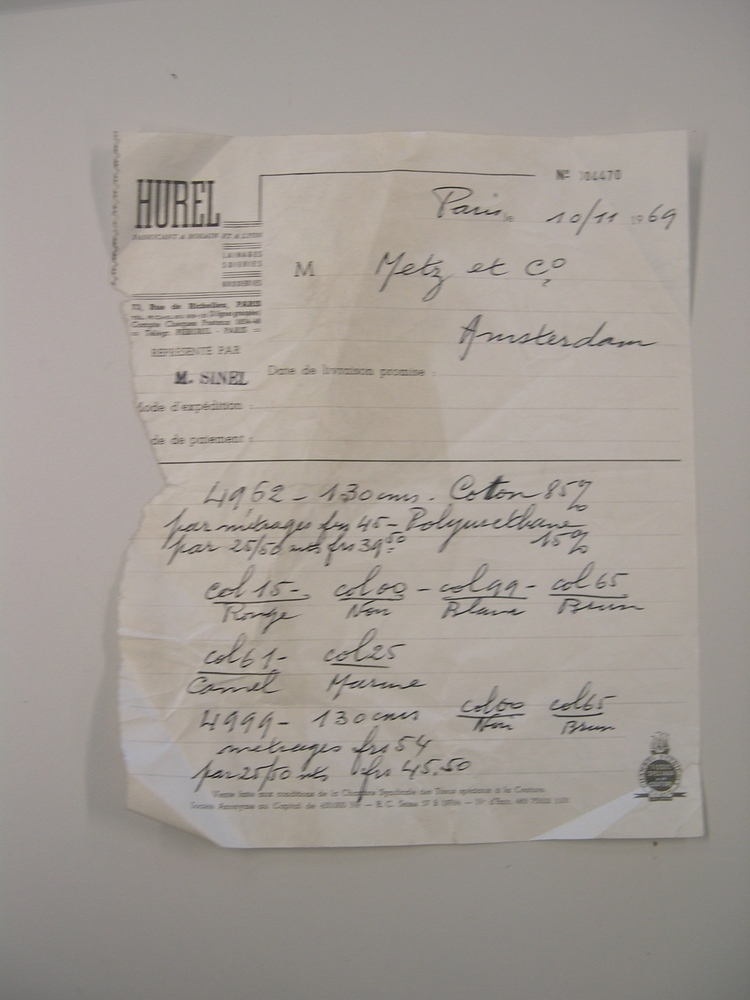 Nº 104470
HUREL
FABRICANT A BOHAIN ET A LYON
LAINAGES
SOIERIES
BRODERIES
Paris, le 10/11 1969
M Metz et Cº
Amsterdam
Rue de Richelieu, PARIS
Compte Chèques Postaux
Télégr. PARIS
REPRÉSENTÉ PAR
M. SINEL
Date de livraison promise :
Mode d'expédition :
de de paiement :
4962 - 130 cms. Coton 85%
par métrages frs 45 - Polyuréthane
par 25/50 mts frs 39.50 15%
col 15 - col 00 - col 99 - col 65
Rouge Noir Blanc Brun
col 61 - col 25
Camel Marine
4999 - 130 cms col 00 col 65
Noir Brun
métrages frs 54
par 25/50 mts frs 45.50
Vente faite aux conditions de la Chambre Syndicale des Tissus spéciaux à la Couture.
Société Anonyme au Capital de